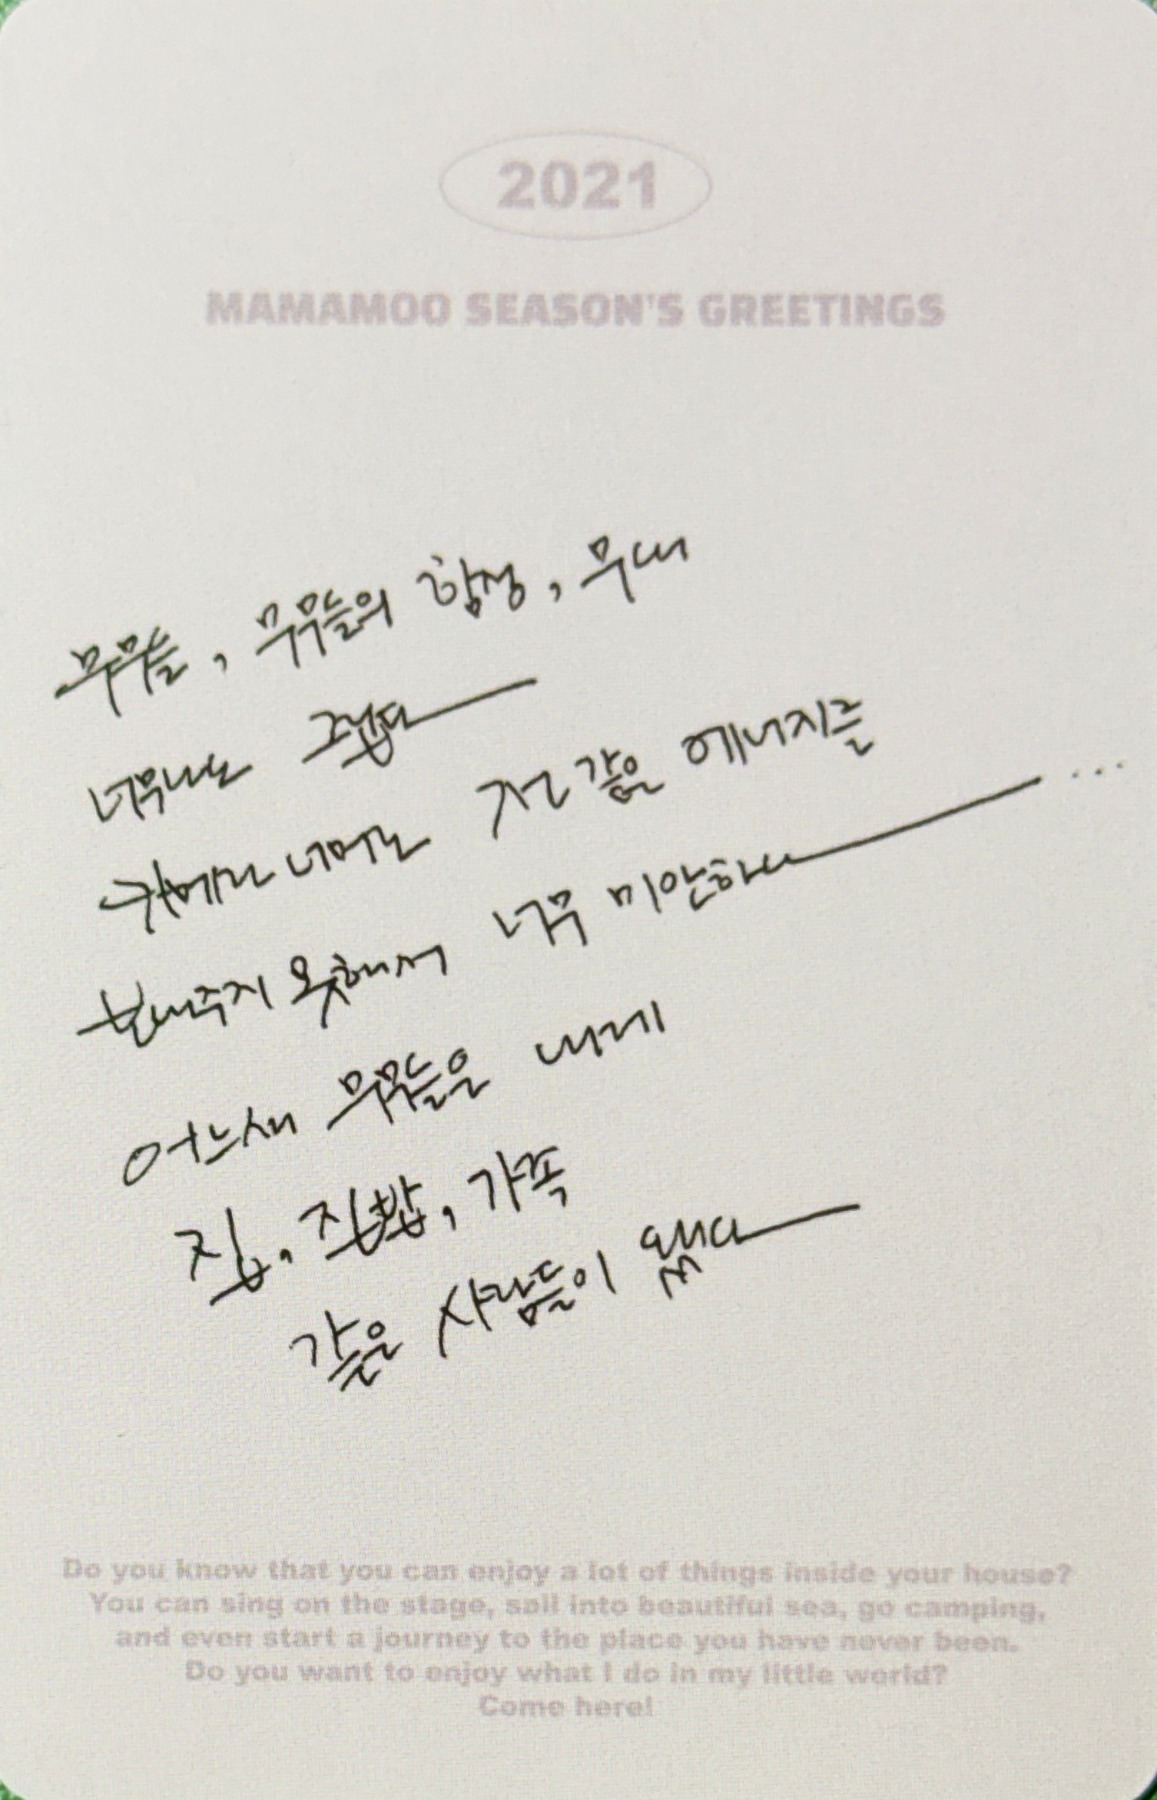 2021
MAMAMOO SEASON'S GREETINGS
무무들, 무무들의 함성, 무대
너무나도 그립다
카메라 너머로 전 같은 에너지를
보내주지 못해서 너무 미안하고
어느새 무무들은 내게
집, 집밥, 가족
같은 사람들이 됐다
Do you know that you can enjoy a lot of things inside your house?
You can sing on the stage, sail into beautiful sea, go camping,
and even start a journey to the place you have never been.
Do you want to enjoy what I do in my little world?
Come here!